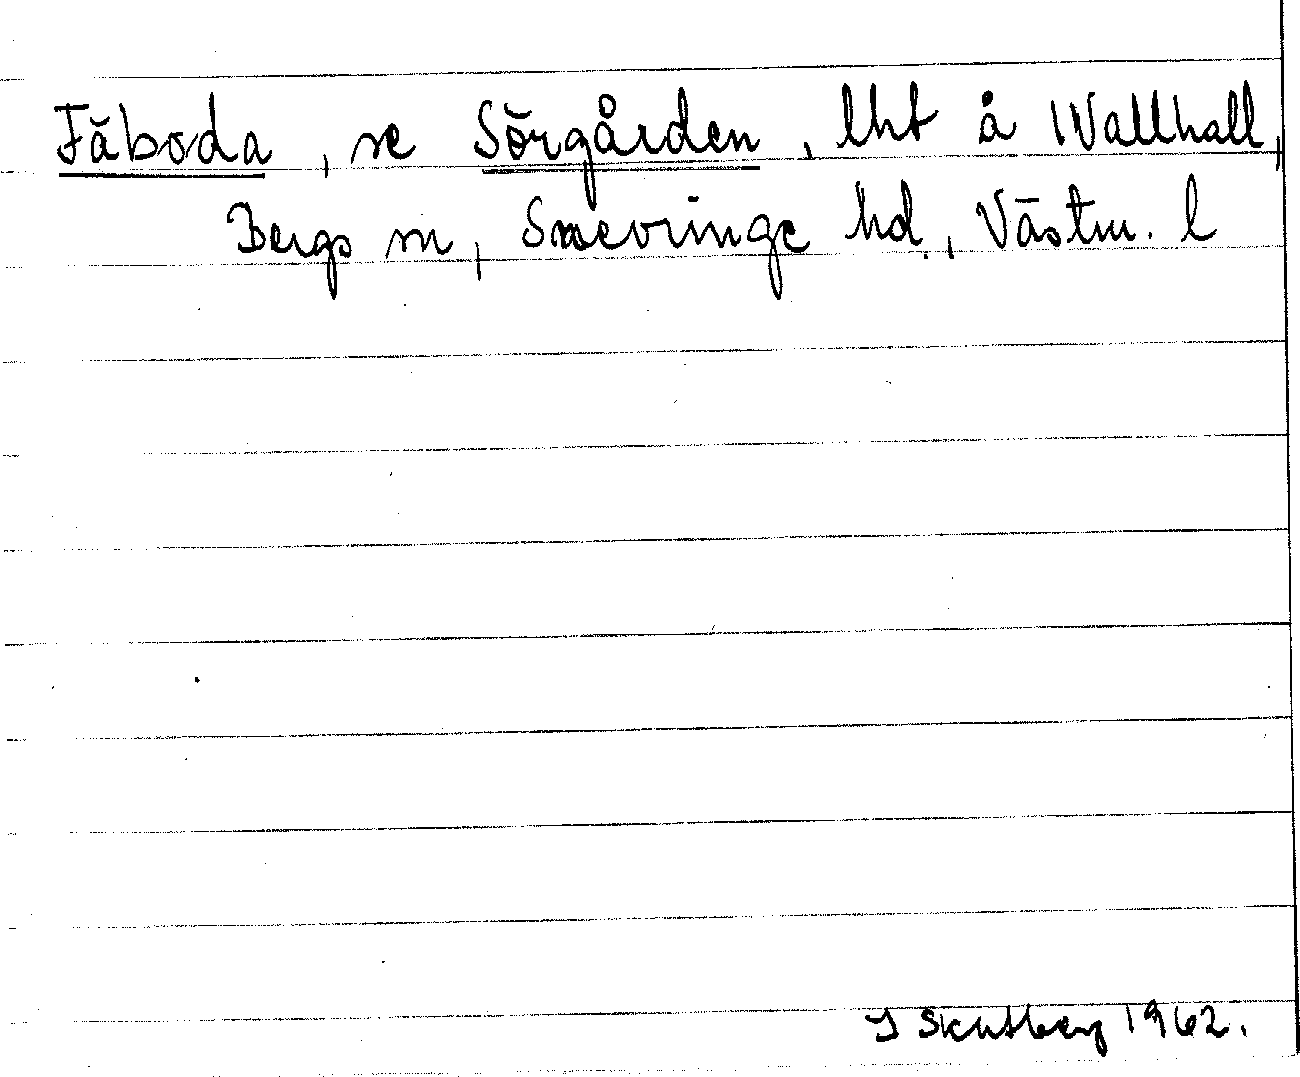 Fäboda, se Sörgården, lht å Wallhall,
Bergs sn, Snevringe hd., Västm. l
S Skutberg 1962.